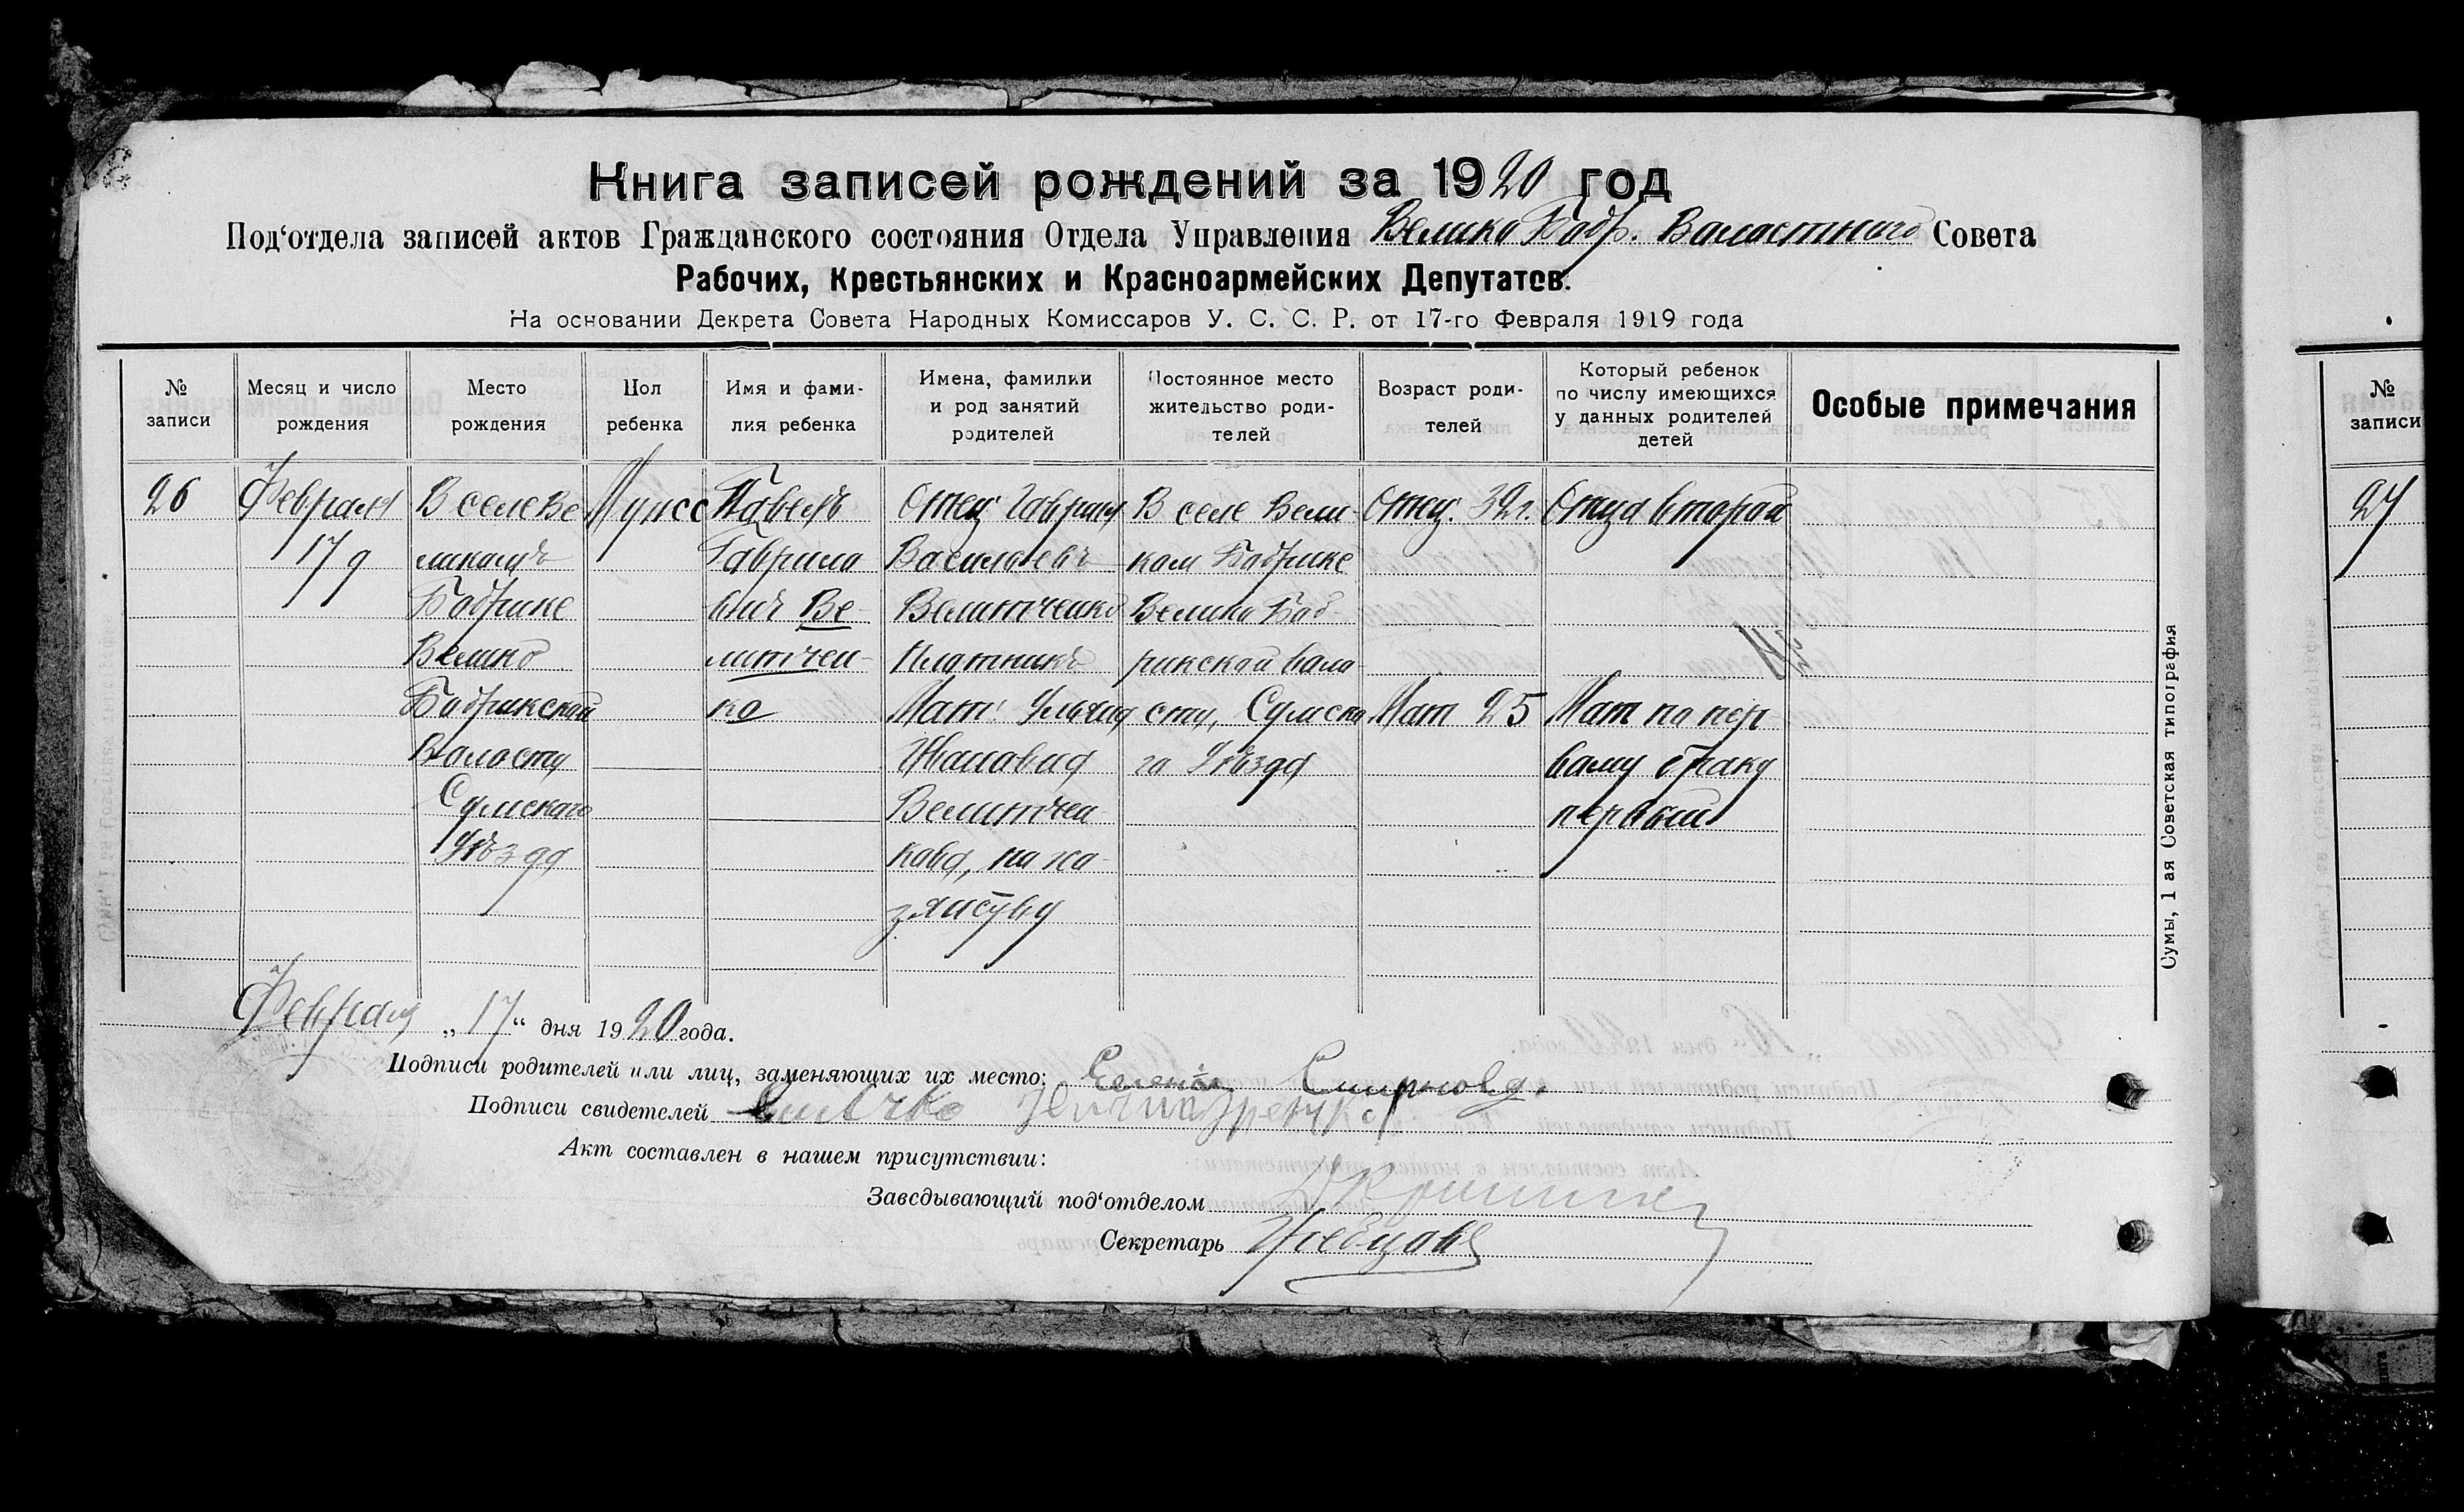 Книга записей рождений за 1920 год
Под‘отдела записей актов Гражданского состояния Отдела Управления Велико Бобр. Воластного Совета
Рабочих, Крестьянских и Красноармейских Депутатов.
На основании Декрета Совета Народных Комиссаров У. С. С. Р. от 17-го Февраля 1919 года
№ записи
Месяц и число рождения
Место рождения
Пол ребенка
Имя и фами-
лия ребенка
Имена, фамилии
и род занятий
родителей
Постоянное место
жительство роди-
телей
Возраст роди-
телей
Который ребенок
по числу имеющихся
у данных родителей
детей
Особые примечания
26
Февраля
17 д
В селе Ве
ликомъ
Бобрике
Велико
Бобрикской
Воласти
Сумскаго
Уѣзда
Мужс
Павелъ
Гаврило
вич Ве-
литчен-
ко
Отец Гаврил
Васильевъ
Велитченко
Плотникъ
Мат
Велитчен
кова, па хо
зяйству
В селе Вели-
ком Бобрике
Велико Боб-
рикской вала-
сти, Сумска
го Уѣзда
Отец. 32 г.
Мат 25
Отца второй
Мат па пер
вому браку
первый
Февраля „17“ дня 1920 года.
Подписи родителей или лиц, заменяющих их место: Елена Смирнова.
Подписи свидетелей
Акт составлен в нашем присутствии:
Заведывающий под‘отделом
Секретарь
Сумы, 1 ая Советская типография
№
записи
27